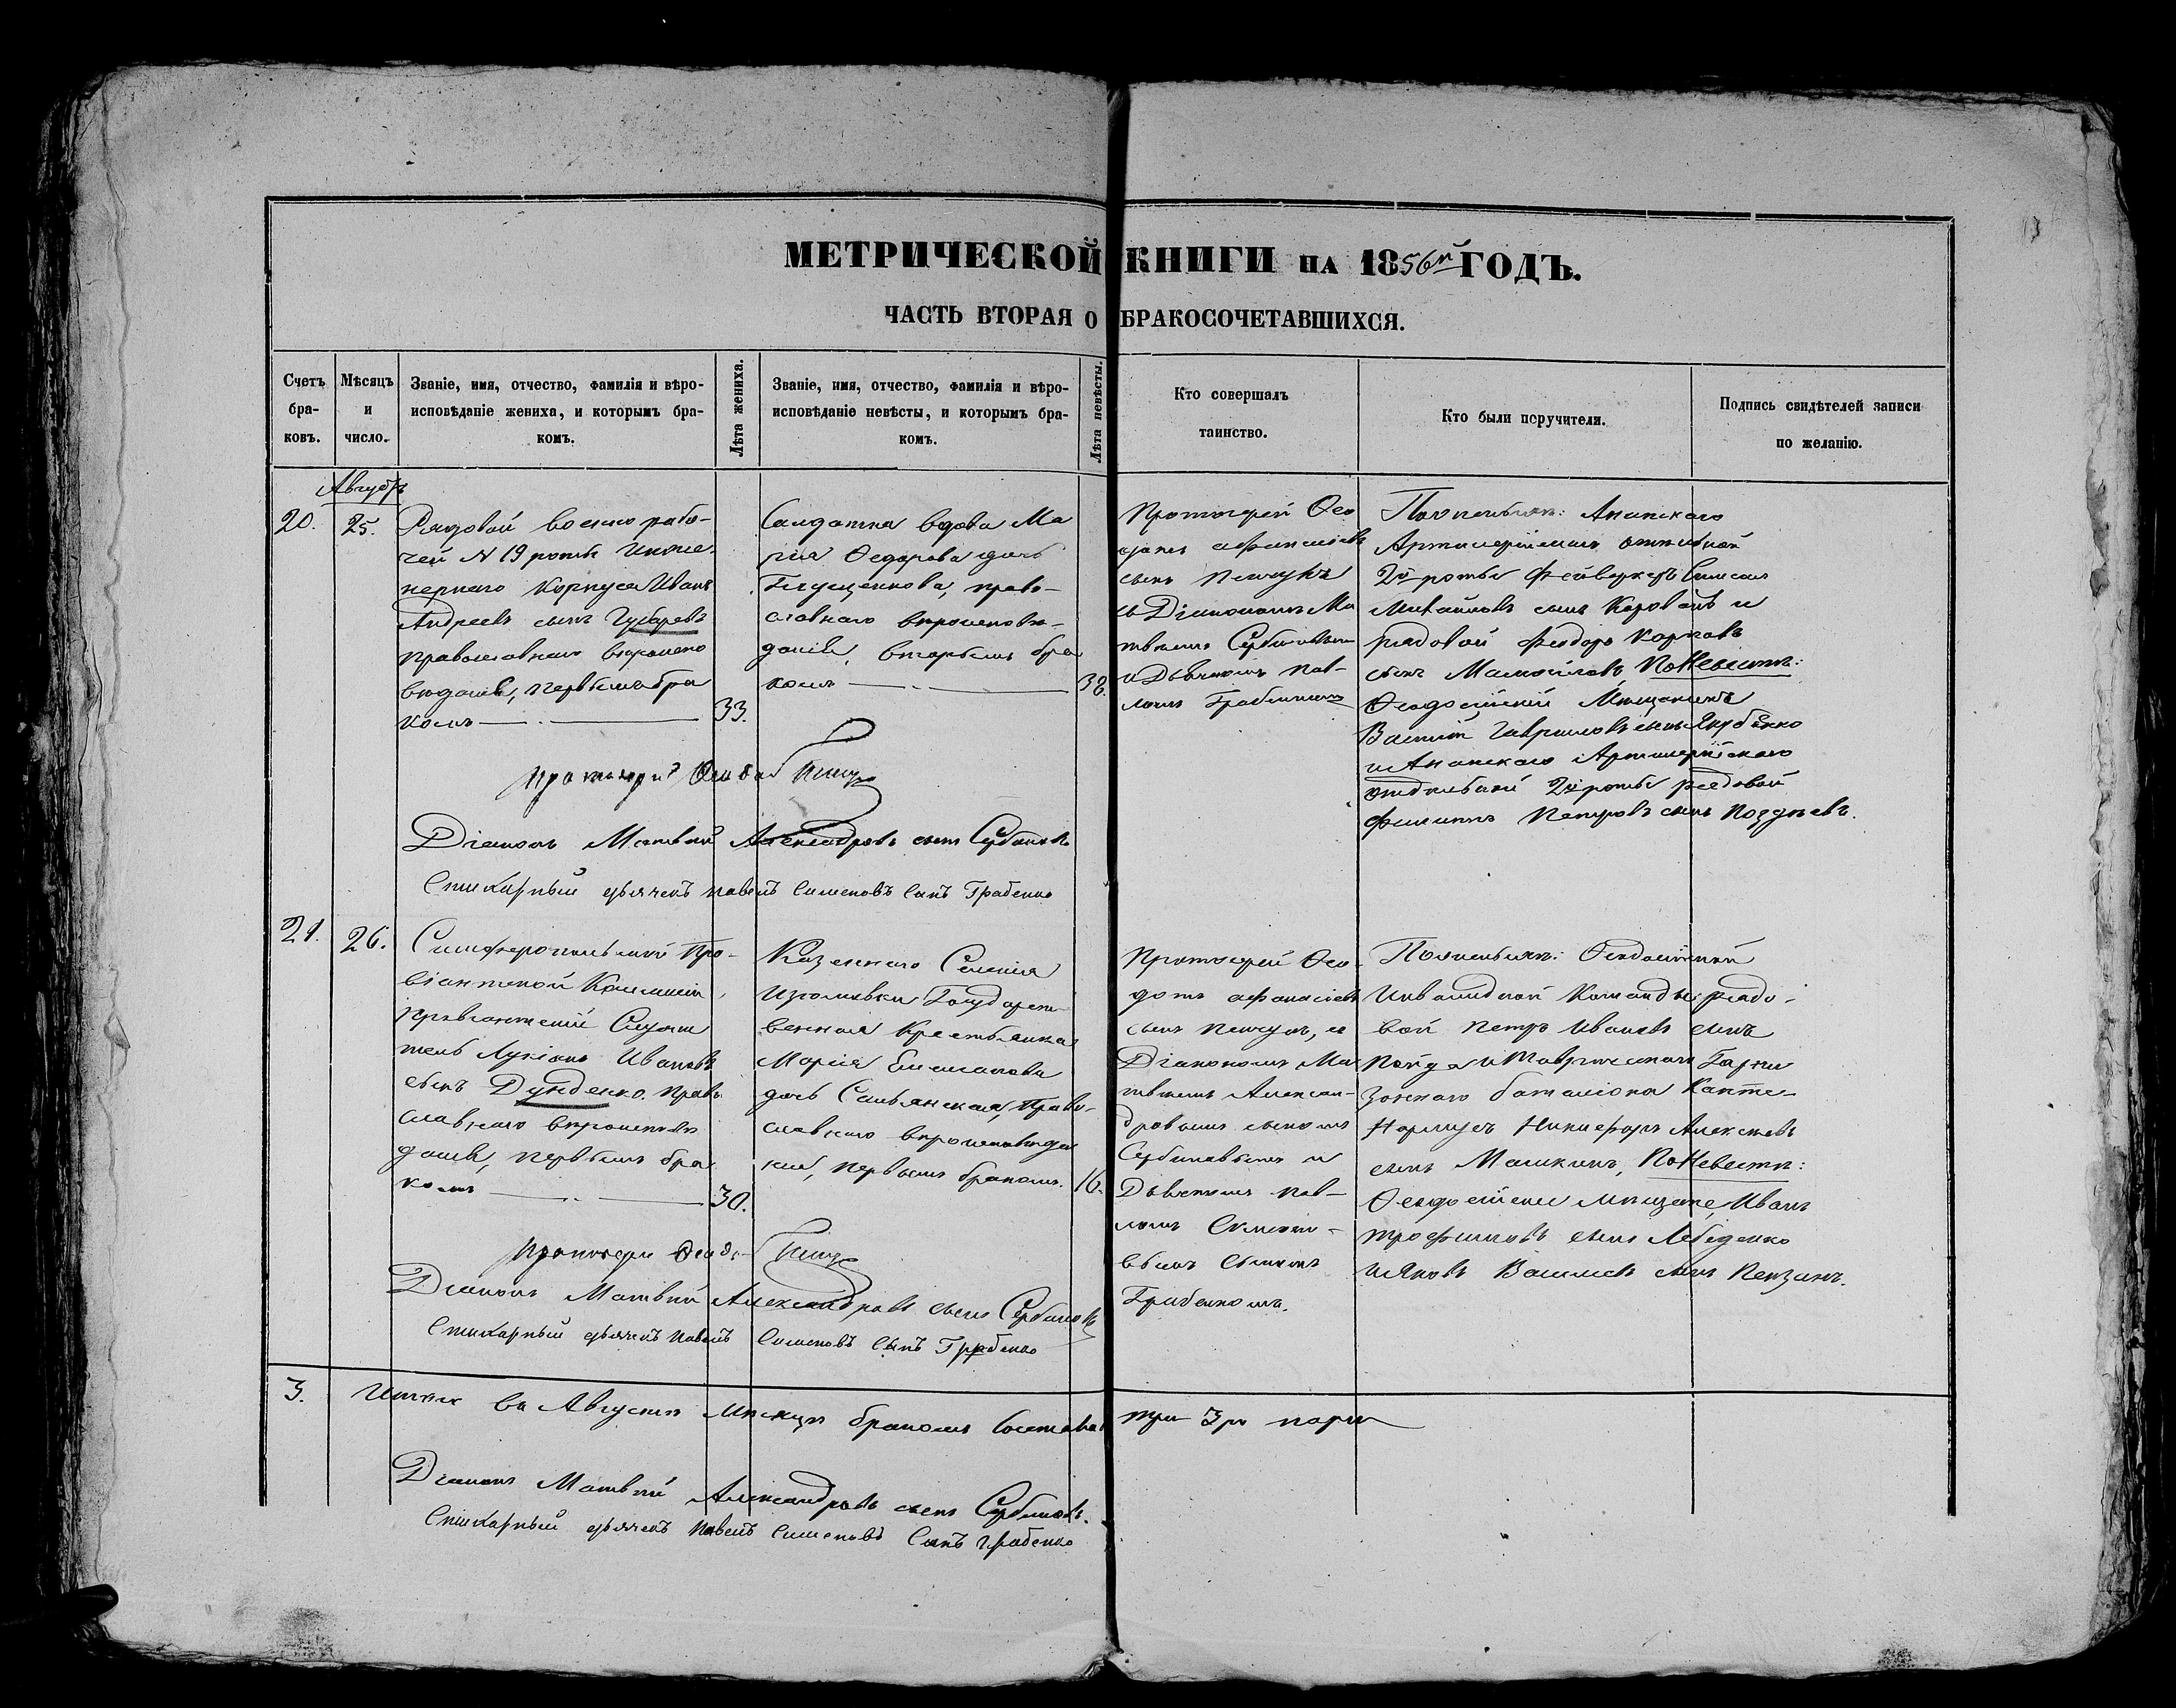 МЕТРИЧЕСКОЙ КНИГИ НА 1856й ГОДЪ.
ЧАСТЬ ВТОРАЯ О БРАКОСОЧЕТАВШИХСЯ.
Счетъ бра-
ковъ.
Мѣсяцъ
и
число.
Званіе, имя, отчество, фамилія и вѣро-
исповѣданіе жениха, и которымъ бра-
комъ.
Лѣта жениха.
Званіе, имя, отчество, фамилія и вѣро-
исповѣданіе невѣсты, и которымъ бра-
комъ.
Лѣта невѣсты.
Кто совершалъ
таинство.
Кто были поручители.
Подпись свидѣтелей записи
по желанію.
20.
25.
Рядовой военно рабо-
чей N 19 роты Инже-
нернаго Корпуса Иванъ
Андреевъ сынъ Гусаревъ
православнаго вѣроиспо
вѣданія, первымъ бра
комъ
33.
Салдатка вдова Ма
рія Ѳедорова дочь
Глущенкова, право-
славнаго вѣроисповѣ-
данія, вторымъ бра
комъ
38.
Протоіерей Ѳео
дотъ Афанасіевъ
сынъ Пенчукъ
съ Діакономъ Ма
твѣемъ Сербиновымъ
и Дьячкомъ Пав-
ломъ Грабенкомъ
По женихѣ: Анапскаго
Артиллерійскаго
2й роты Фейверкеръ
Михайловъ сынъ и
рядовой Феодоръ Карповъ
сынъ Мамойловъ, По Невестѣ:
Ѳеодосійскій Мѣщанинъ
Василій Гавриловъ сынъ Якубенко
и Анапскаго Артиллерійскаго
2й роты рядовой
Филиппъ Петровъ сынъ Позднѣевъ.
Діаконъ Матвѣй Александровъ сынъ Сербиновъ
Стихарный дьячекъ Павелъ Симеоновъ Сынъ Грабенко
21.
26.
Симферопольской Про-
віантской Комиссіи
провіантскій Служи
тель Лукіанъ Ивановъ
сынъ Дунденко, Право
славнаго вѣроисповѣ
данія, первымъ бра
комъ
30.
Казеннаго Селенія
Изюмовки Государст-
венная Крестьянка
Марія Емельянова
дочь Сильянская, Право-
славнаго вѣроисповѣда
нія, первымъ бракомъ.
16.
Протоіерей Ѳео-
дотъ Афанасіевъ
сынъ Пенчукъ, съ
Діакономъ Ма
твѣемъ Алексан-
дровымъ сыномъ
Сербиновымъ и
Дьячкомъ Пав-
ломъ Симеоно-
вымъ сыномъ
Грабенкомъ.
По женихѣ: Ѳеодосійской
Инвалидной Команды рядо-
вой Петръ Ивановъ сынъ
Пойда и Таврическаго Гарни
зоннаго баталіона Капте-
нармусъ Никифоръ Алексѣевъ
сынъ Машкинъ, По Невестѣ:
Ѳеодосійскіе мѣщане, Иванъ
Трофимовъ сынъ Лебеденко
и Яковъ Васильевъ сынъ Пензинъ.
Діаконъ Матвѣй Александровъ сынъ Сербиновъ
Стихарный дьячекъ Павелъ Симеоновъ Сынъ Грабенко
3.
Итакъ въ Августѣ Мѣсяцѣ бракомъ три 3ри пары
Діаконъ Матвѣй Александровъ сынъ Сербиновъ.
Стихарный дьячекъ Павелъ Симеоновъ Сынъ Грабенко